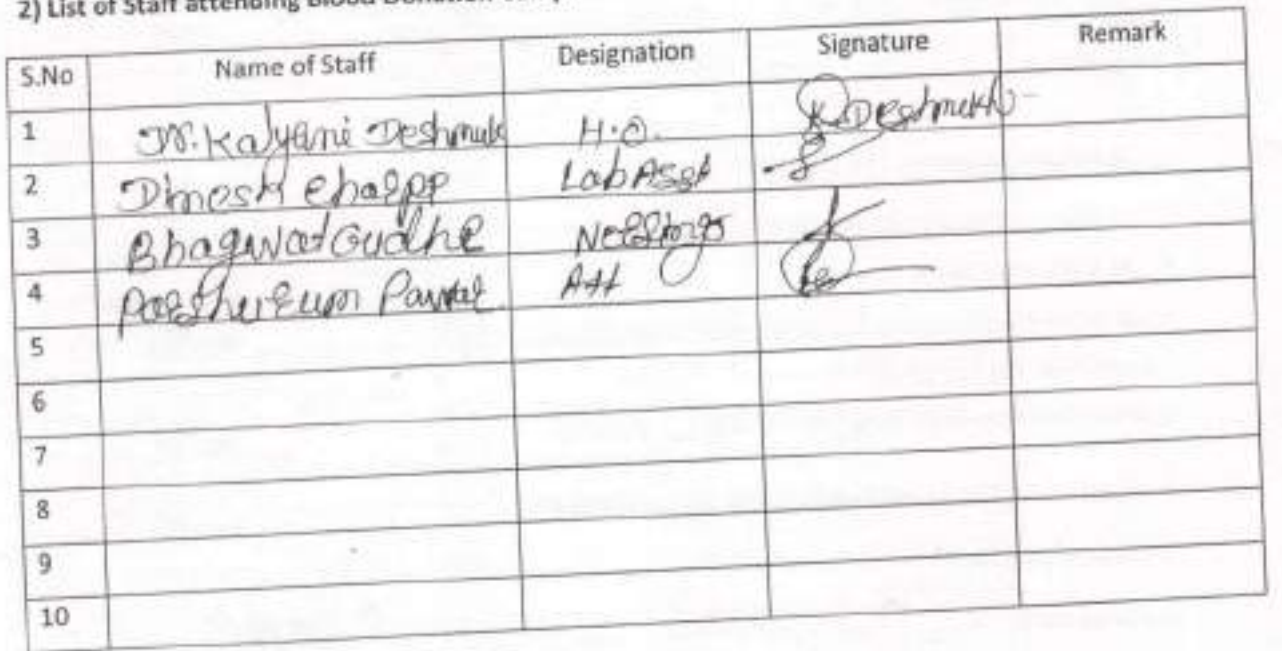 2) List of Staff attending Blood Donation
S.No Name of Staff Designation Signature Remark
1 Dr. Kalyani Deshmukh H.O. K Deshmukh
2 Dinesh Lab Asst
3 Bhagwat Gudhe
4 Att
5
6
7
8
9
10